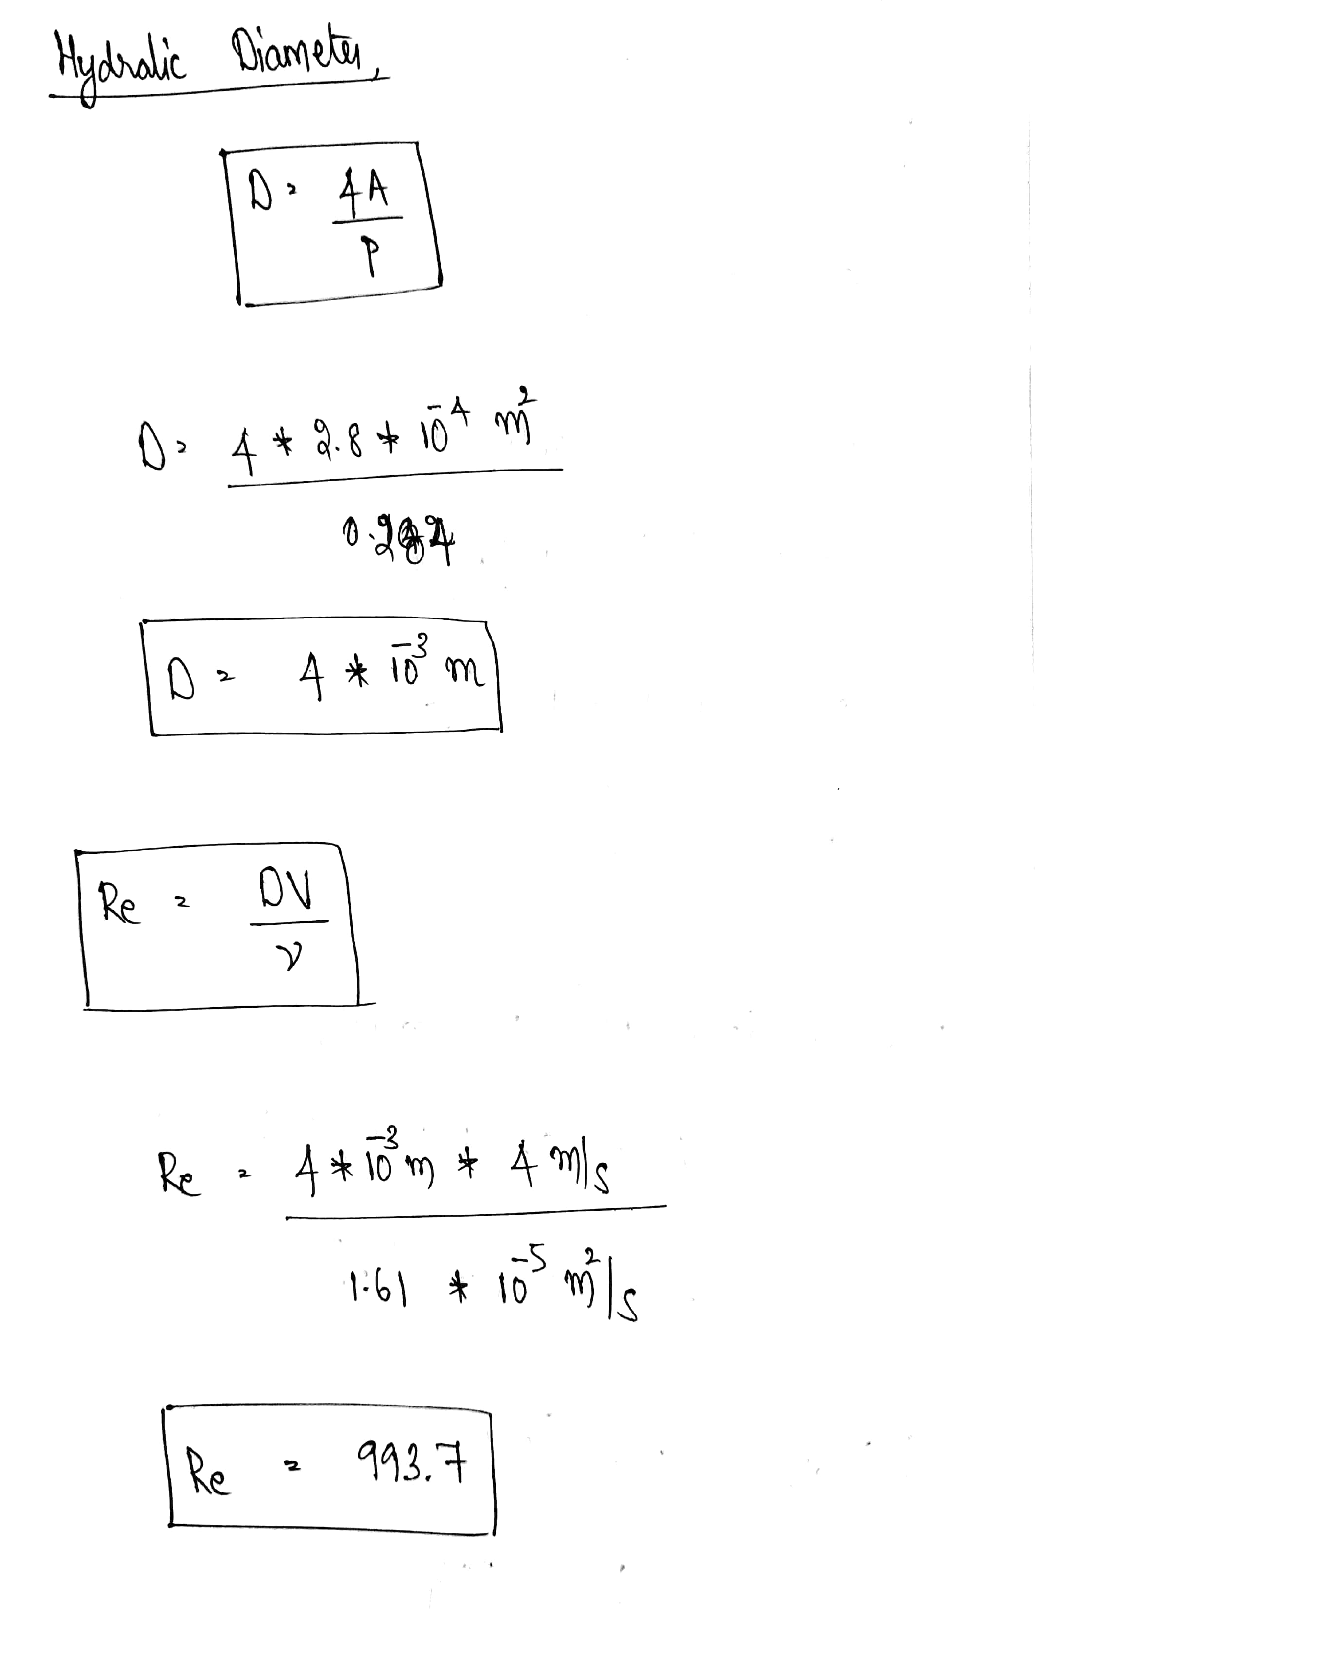 Hydralic Diameter,
D = 4A
P
D = 4 * 2.8 * 10^-4 m^2
D = 4 * 10^-3 m
Re = DV
ν
Re = 4 * 10^-3 m * 4 m/s
1.61 * 10^-5 m^2/s
Re = 993.7